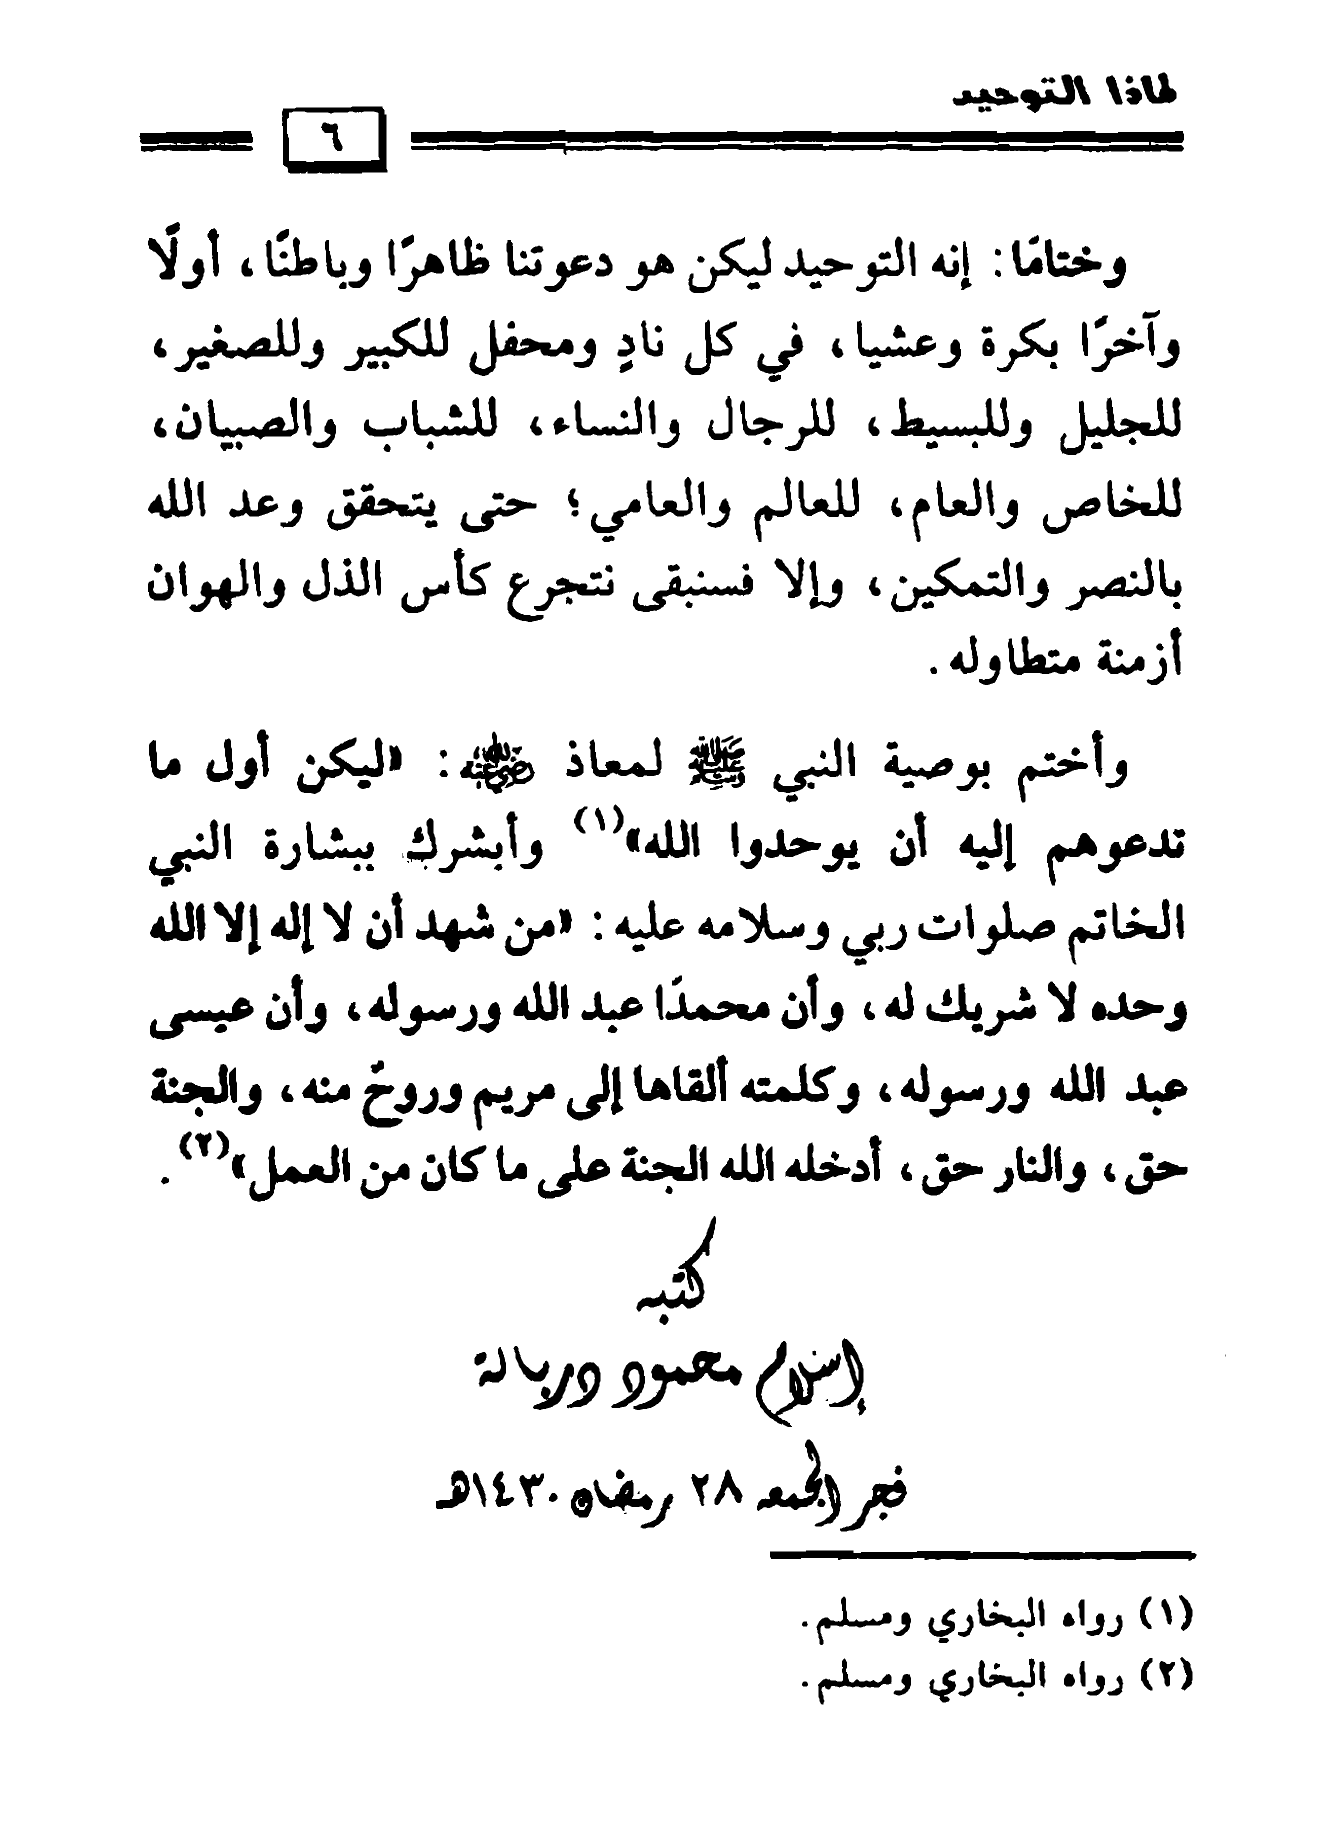 لماذا التوحيد
٦
وختامًا: إنه التوحيد ليكن هو دعوتنا ظاهرًا وباطنًا، أولًا
وآخرًا بكرة وعشيا، في كل نادٍ ومحفل للكبير وللصغير،
للجليل وللبسيط، للرجال والنساء، للشباب والصبيان،
للخاص والعام، للعالم والعامي؛ حتى يتحقق وعد الله
بالنصر والتمكين، وإلا فسنبقى نتجرع كأس الذل والهوان
أزمنة متطاوله.
وأختم بوصية النبي ﷺ لمعاذ رضي الله عنه: «ليكن أول ما
تدعوهم إليه أن يوحدوا الله»(١) وأبشرك ببشارة النبي
الخاتم صلوات ربي وسلامه عليه: «من شهد أن لا إله إلا الله
وحده لا شريك له، وأن محمدًا عبد الله ورسوله، وأن عيسى
عبد الله ورسوله، وكلمته ألقاها إلى مريم وروحٌ منه، والجنة
حق، والنار حق، أدخله الله الجنة على ما كان من العمل»(٢).
كتبه
إسلام محمود دربالة
فجر الجمعه ٢٨ رمضان ١٤٣٠هـ
(١) رواه البخاري ومسلم.
(٢) رواه البخاري ومسلم.